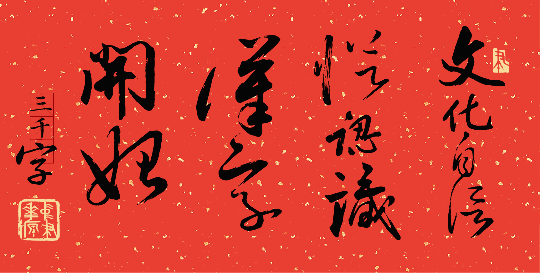 文化自信
從認識
漢字
開始
三千字